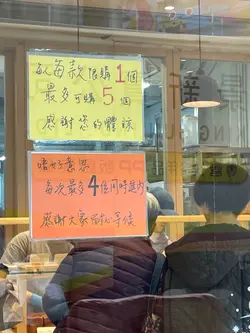 每人每款限購1個
最多可購5個
感謝您的體諒
唔好意思
每次最多4位同時進內
感謝大家耐心等候